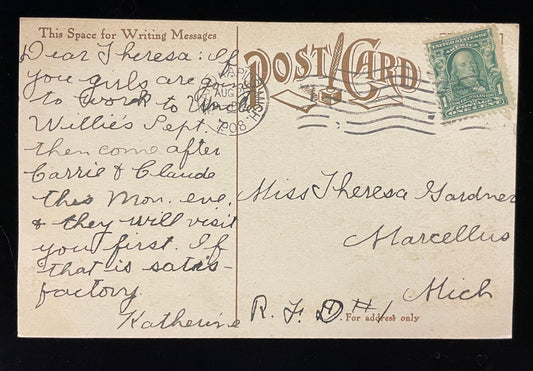 This Space for Writing Messages
Dear Theresa: If
you girls are going
to work to Uncle
Willie's Sept. 7
then come after
Carrie & Claude
this Mon. eve.
& they will visit
you first. If
that is satis-
factory
Katherine
POST CARD
AUG
1908
MICH.
1
1
Miss Theresa Gardner
Marcellus
Mich
R. F. D. #1
For address only